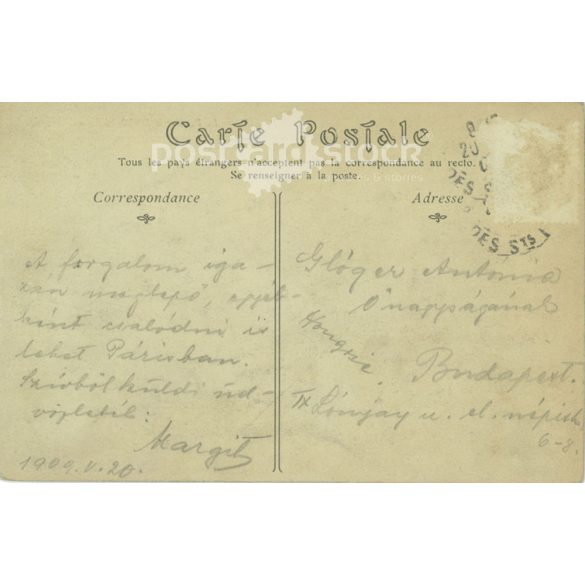 Carte Postale
Tous les pays étrangers n'acceptent pas la correspondance au recto.
Se renseigner à la poste.
Correspondance
Adresse
A forgalom iga-
zan meglepő,
ként csalódni is
lehet Párisban.
Szivből küldi üd-
vözletét:
Margit
1909.V.20.
Glóger Antonia
Önagyságának
Hongrie
Budapest.
IX Lónyay u. el. népisk
6-8.
DES STS
postcard stock